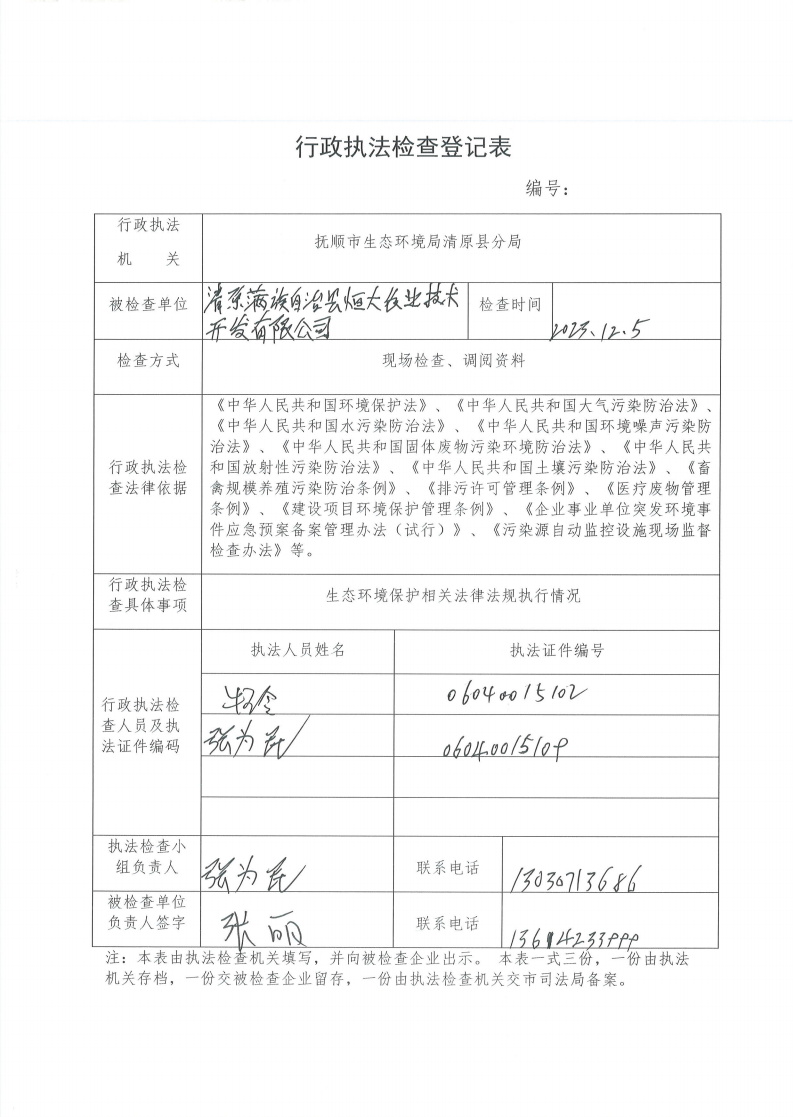 行政执法检查登记表
编号：
行政执法
机 关
抚顺市生态环境局清原县分局
被检查单位
清原满族自治县恒大农业技术
开发有限公司
检查时间
2023.12.5
检查方式
现场检查、调阅资料
行政执法检
查法律依据
《中华人民共和国环境保护法》、《中华人民共和国大气污染防治法》、
《中华人民共和国水污染防治法》、《中华人民共和国环境噪声污染防
治法》、《中华人民共和国固体废物污染环境防治法》、《中华人民共
和国放射性污染防治法》、《中华人民共和国土壤污染防治法》、《畜
禽规模养殖污染防治条例》、《排污许可管理条例》、《医疗废物管理
条例》、《建设项目环境保护管理条例》、《企业事业单位突发环境事
件应急预案备案管理办法（试行）》、《污染源自动监控设施现场监督
检查办法》等。
行政执法检
查具体事项
生态环境保护相关法律法规执行情况
行政执法检
查人员及执
法证件编码
执法人员姓名
执法证件编号
06040015102
张为民
06040015109
执法检查小
组负责人
张为民
联系电话
13030713686
被检查单位
负责人签字
张丽
联系电话
注：本表由执法检查机关填写，并向被检查企业出示。 本表一式三份，一份由执法
机关存档，一份交被检查企业留存，一份由执法检查机关交市司法局备案。